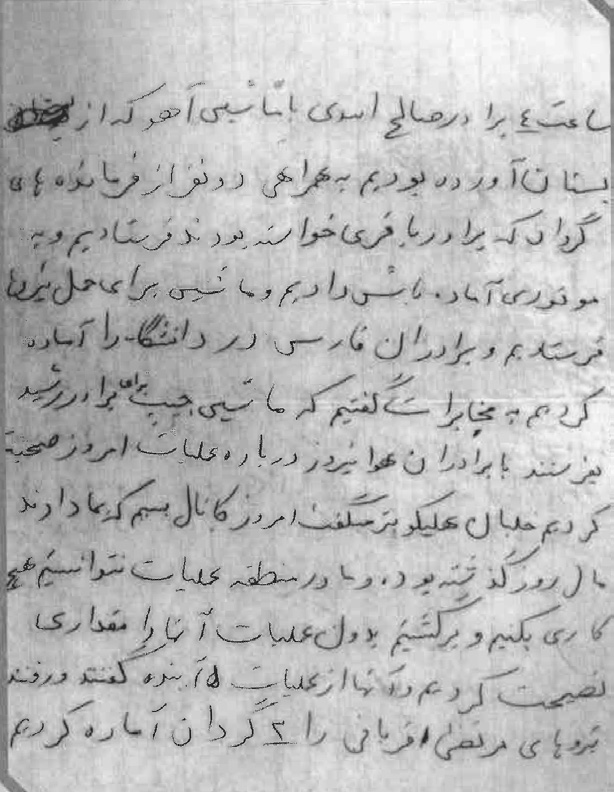 ساعت ٤ برادر صالح اسدی با ماشین آهو که از
بستان آورده بودیم به همراهی دو نفر از فرمانده های
گردان که برادر باقری خواسته بودند فرستادیم و به
موتوری آماده باش دادیم و ماشین برای حمل نیروها
فرستادیم و برادران فارسی در دانشگاه را آماده
کردیم به مخابرات گفتیم که ماشین جیپ برای برادر رشید
بفرستند با برادران هوانیروز درباره عملیات امروز صحبت
کردیم خلبان هلیکوپتر میگفت امروز کانال بیسیم که بما دادند
مال روز گذشته بوده و ما در منطقه عملیات نتوانستیم هیچ
کاری بکنیم و برگشتیم بدون عملیات آنها را مقداری
نصیحت کردیم و آنها از عملیات آینده گفتند و رفتند
نیروهای مرتضی قربانی را ۲ گردان آماده کردیم